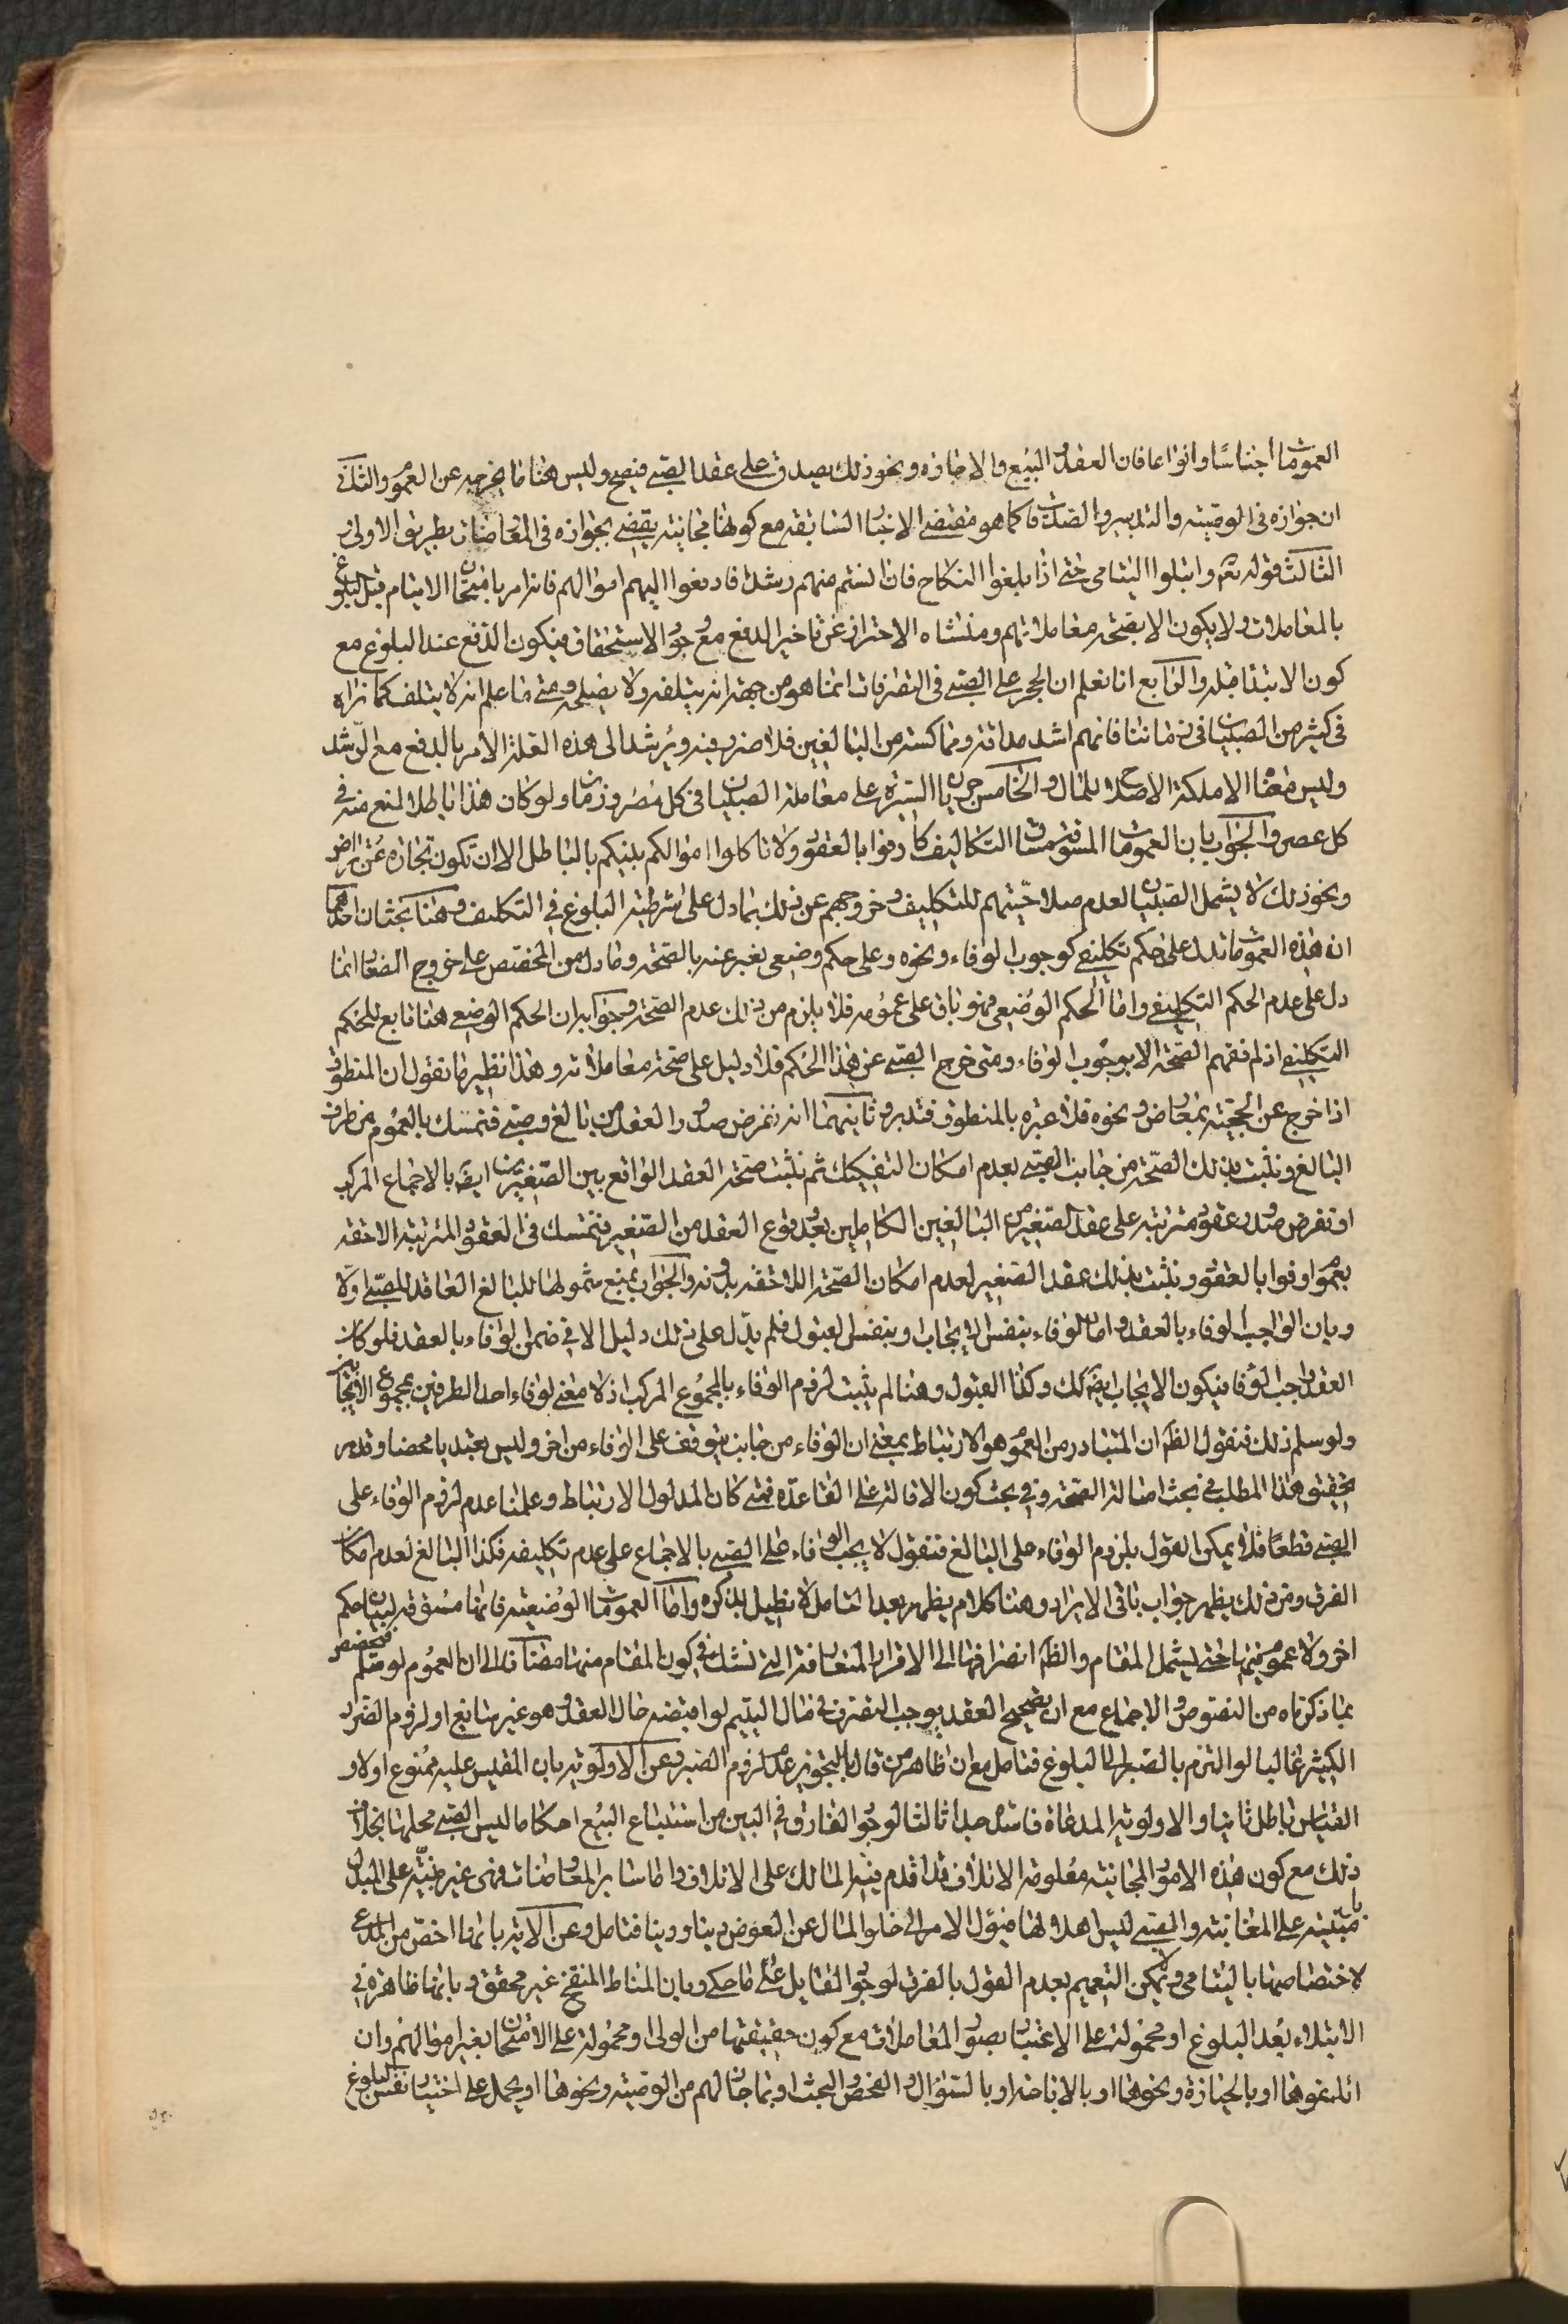 العمومات اجناسا وانواعا فان العقد والبيع والاجازه ونحو ذلك يصدق على عقد الصبي فيصح وليس هنا ما يخرجه عن العموم والثاني
ان جوازه في الوصيته والتدبير والصدقات كما هو مقتضى الاخبار السابقه مع كونها مجانيته يقضي بجوازه في المعاوضات بطريق الاولى
الثالث قوله تعم وابتلوا اليتامى حتى اذا بلغوا النكاح فان انستم منهم رشدا فادفعوا اليهم اموالهم فانه امر بامتحان الايتام قبل البلوغ
بالمعاملات ولا يكون الا بصحته معاملاتهم ومنشاه الاحتراز عن تاخير الدفع مع وجود الاستحقاق فيكون الدفع عند البلوغ مع
كون الابتلا قبله والرابع انا نعلم ان الحجر على الصبي في التصرفات انما هو من جهة انه يتلفه ولا يصلحه ومتى ما علم انه لا يتلف كما نراه
في كثير من الصبيان في زماننا فانهم اشد مداقه ومماكسته من البالغين فلا ضرر فيه ويرشد الى هذه العلة الامر بالدفع مع الرشد
وليس معناه الا ملكة الاصلاح للمال والخامس جريان السيرة على معاملة الصبيان في كل مصر وزمان ولو كان هذا باطلا لمنع منه في
كل عصر والجواب بان العمومات المسوقة مساق التكاليف كاوفوا بالعقود ولا تاكلوا اموالكم بينكم بالباطل الا ان تكون تجارة عن تراض
ونحو ذلك لا يشمل الصبيان لعدم صلاحيتهم للتكليف وخروجهم عن ذلك بما دل على شرطيته البلوغ في التكليف وهنا بحثان احدهما
ان هذه العمومات تدل على حكم تكليفي كوجوب الوفاء ونحوه وعلى حكم وضعي يعبر عنه بالصحته وما دل من المخصص على خروج الصغار انما
دل على عدم الحكم التكليفي واما الحكم الوضعي فهو باق على عمومه فلا يلزم من ذلك عدم الصحته وجوابه ان الحكم الوضعي هنا تابع للحكم
التكليفي اذ لم نفهم الصحته الا بوجوب الوفاء ومتى خرج الصبي عن هذا الحكم فلا دليل على صحته معاملاته وهذا نظير ما نقول ان المنطوق
اذا خرج عن الحجيته بمعارض ونحوه فلا عبرة بالمنطوق فتدبر وثانيهما انه نفرض صدور العقد من بالغ وصبي فنتمسك بالعموم من طرف
البالغ ونثبت بذلك الصحته من جانب الصبي لعدم امكان التفكيك ثم نثبت صحته العقد الواقع بين الصغيرين ايضا بالاجماع المركب
او نفرض صدور عقود مترتبه على عقد الصغير من البالغين الكاملين بعد وقوع العقد من الصغير فنتمسك في العقود المترتبه اللاحقه
بعموم اوفوا بالعقود ونثبت بذلك عقد الصغير لعدم امكان الصحته اللاحقه بدونه والجواب بمنع شمولها للبالغ العاقد للصبي اولا
وبان الواجب الوفاء بالعقد واما الوفاء بنفس الايجاب وبنفس القبول فلم يدل على ذلك دليل الا في ضمن الوفاء بالعقد فلو كان
العقد واجب الوفا فيكون الايجاب ايضا كك وكذا القبول وهنا لم يثبت لزوم الوفاء بالمجموع المركب اذ لا معنى لوفاء احد الطرفين بمجموع الايجاب
ولو سلم ذلك فنقول الظم ان المتبادر من العموم هو الارتباط بمعنى ان الوفاء من جانب يتوقف على الوفاء من اخر وليس تعبديا محضا وقد مر
تحقيق هذا المطلب في بحث اصالة الصحته وفي بحث كون الاقالة على القاعده فمتى كان المدلول الارتباط وعلمنا عدم لزوم الوفاء على
الصبي قطعا فلا يمكن القول بلزوم الوفاء على البالغ فنقول لا يجب الوفاء على الصبي بالاجماع على عدم تكليفه فكذا البالغ لعدم امكان
الفرق ومن ذلك يظهر جواب باقي الايراد وهنا كلام يظهر بعد التامل لا نطيل بذكره واما العمومات الوضعيته فانها مسوقه لبيان حكم
اخر ولا عموم فيها حتى يشمل المقام والظم انصرافها الى الافراد المتعارفة التي نشك في كون المقام منها مضافا الى ان العموم لو سلم فمخصص
بما ذكرناه من النصوص والاجماع مع ان تصحيح العقد يوجب التصرف في مال اليتيم لو اقبضه حال العقد وهو غير سايغ او لزوم الضرر
الكثير غالبا لو التزم بالصبر الى البلوغ فتامل مع ان ظاهر من قال بالتجويز عدم لزوم الصبر وعن الاولويه بان المقيس عليه ممنوع اولا و
القياس باطل ثانيا والاولويه المدعاة فاسده جدا ثالثا لوجود الفارق في البين من استتباع البيع احكاما ليس الصبي محلها بخلاف
ذلك مع كون هذه الامور المجانيته معلومة الاتلاف قد اقدم فيه المالك على الاتلاف واما ساير المعاوضات فهي غير مبنيه على البذل
بل مبنيته على المغابنته والصبي ليس اهلا لها فيؤل الامر الى خلو المال عن العوض دينا ودينا فتامل وعن الايه بانها اخص من المدعى
لاختصاصها باليتامى ولا يمكن التعميم بعدم القول بالفرق لوجود القايل على ما حكى وبان المناط المنقح غير محقق وبانها ظاهره في
الابتلاء بعد البلوغ او محموله على الاعتبار بصور المعاملات مع كون حقيقتها من الولى او محموله على الامتحان بغير اموالهم وان
اتلفوها او بالحيازة ونحوها او بالاباحه او بالسؤال والفحص والبحث او بما جاز لهم من الوصيته ونحوها او يحمل على اختبار نفس البلوغ